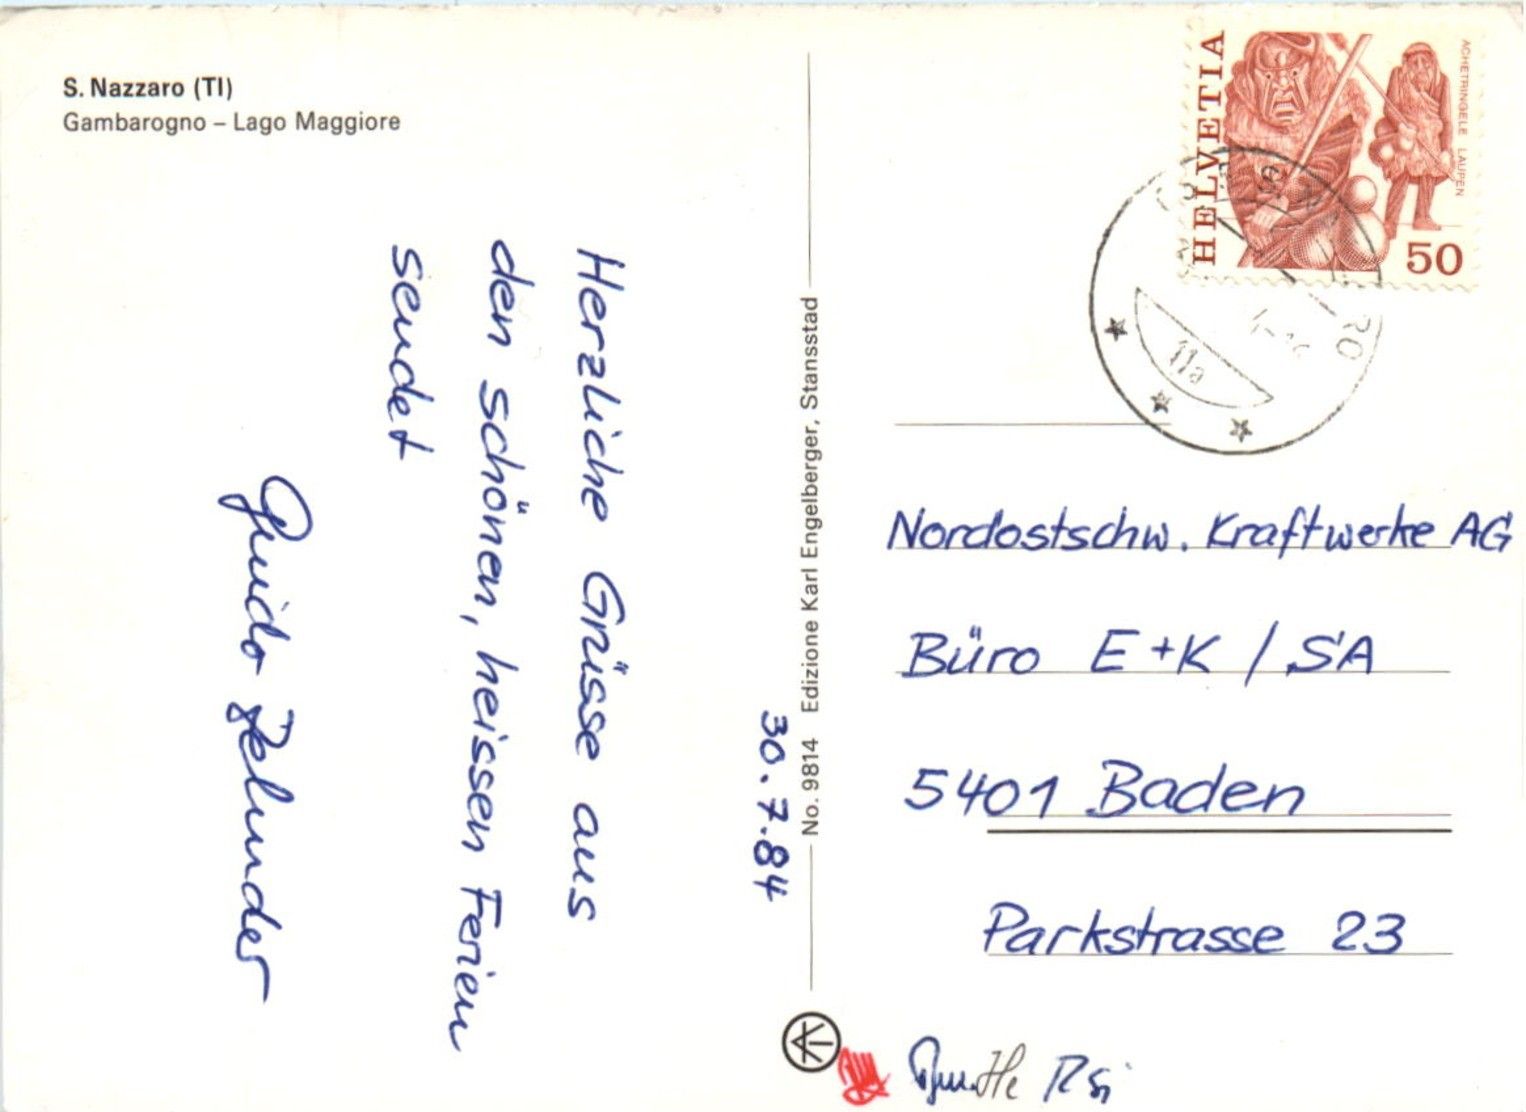 S. Nazzaro (TI)
Gambarogno – Lago Maggiore
30.7.84
Herzliche Grüsse aus
den schönen, heissen Ferien
sendet
Guido Zehnder
No. 9814 Edizione Karl Engelberger, Stansstad
HELVETIA
ACHETRINGELE LAUPEN
50
11a
Nordostschw. Kraftwerke AG
Büro E+K / SA
5401 Baden
Parkstrasse 23